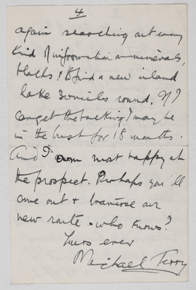 4
again searching out any
kind of information on minerals,
blacks & to find a new inland
lake 30 miles round. If I
can get the backing I may be
in the bush for 18 months.
And I am most happy at
the prospect. Perhaps you'll
come out & traverse our
new route - who knows?
Yours ever
Michael Terry